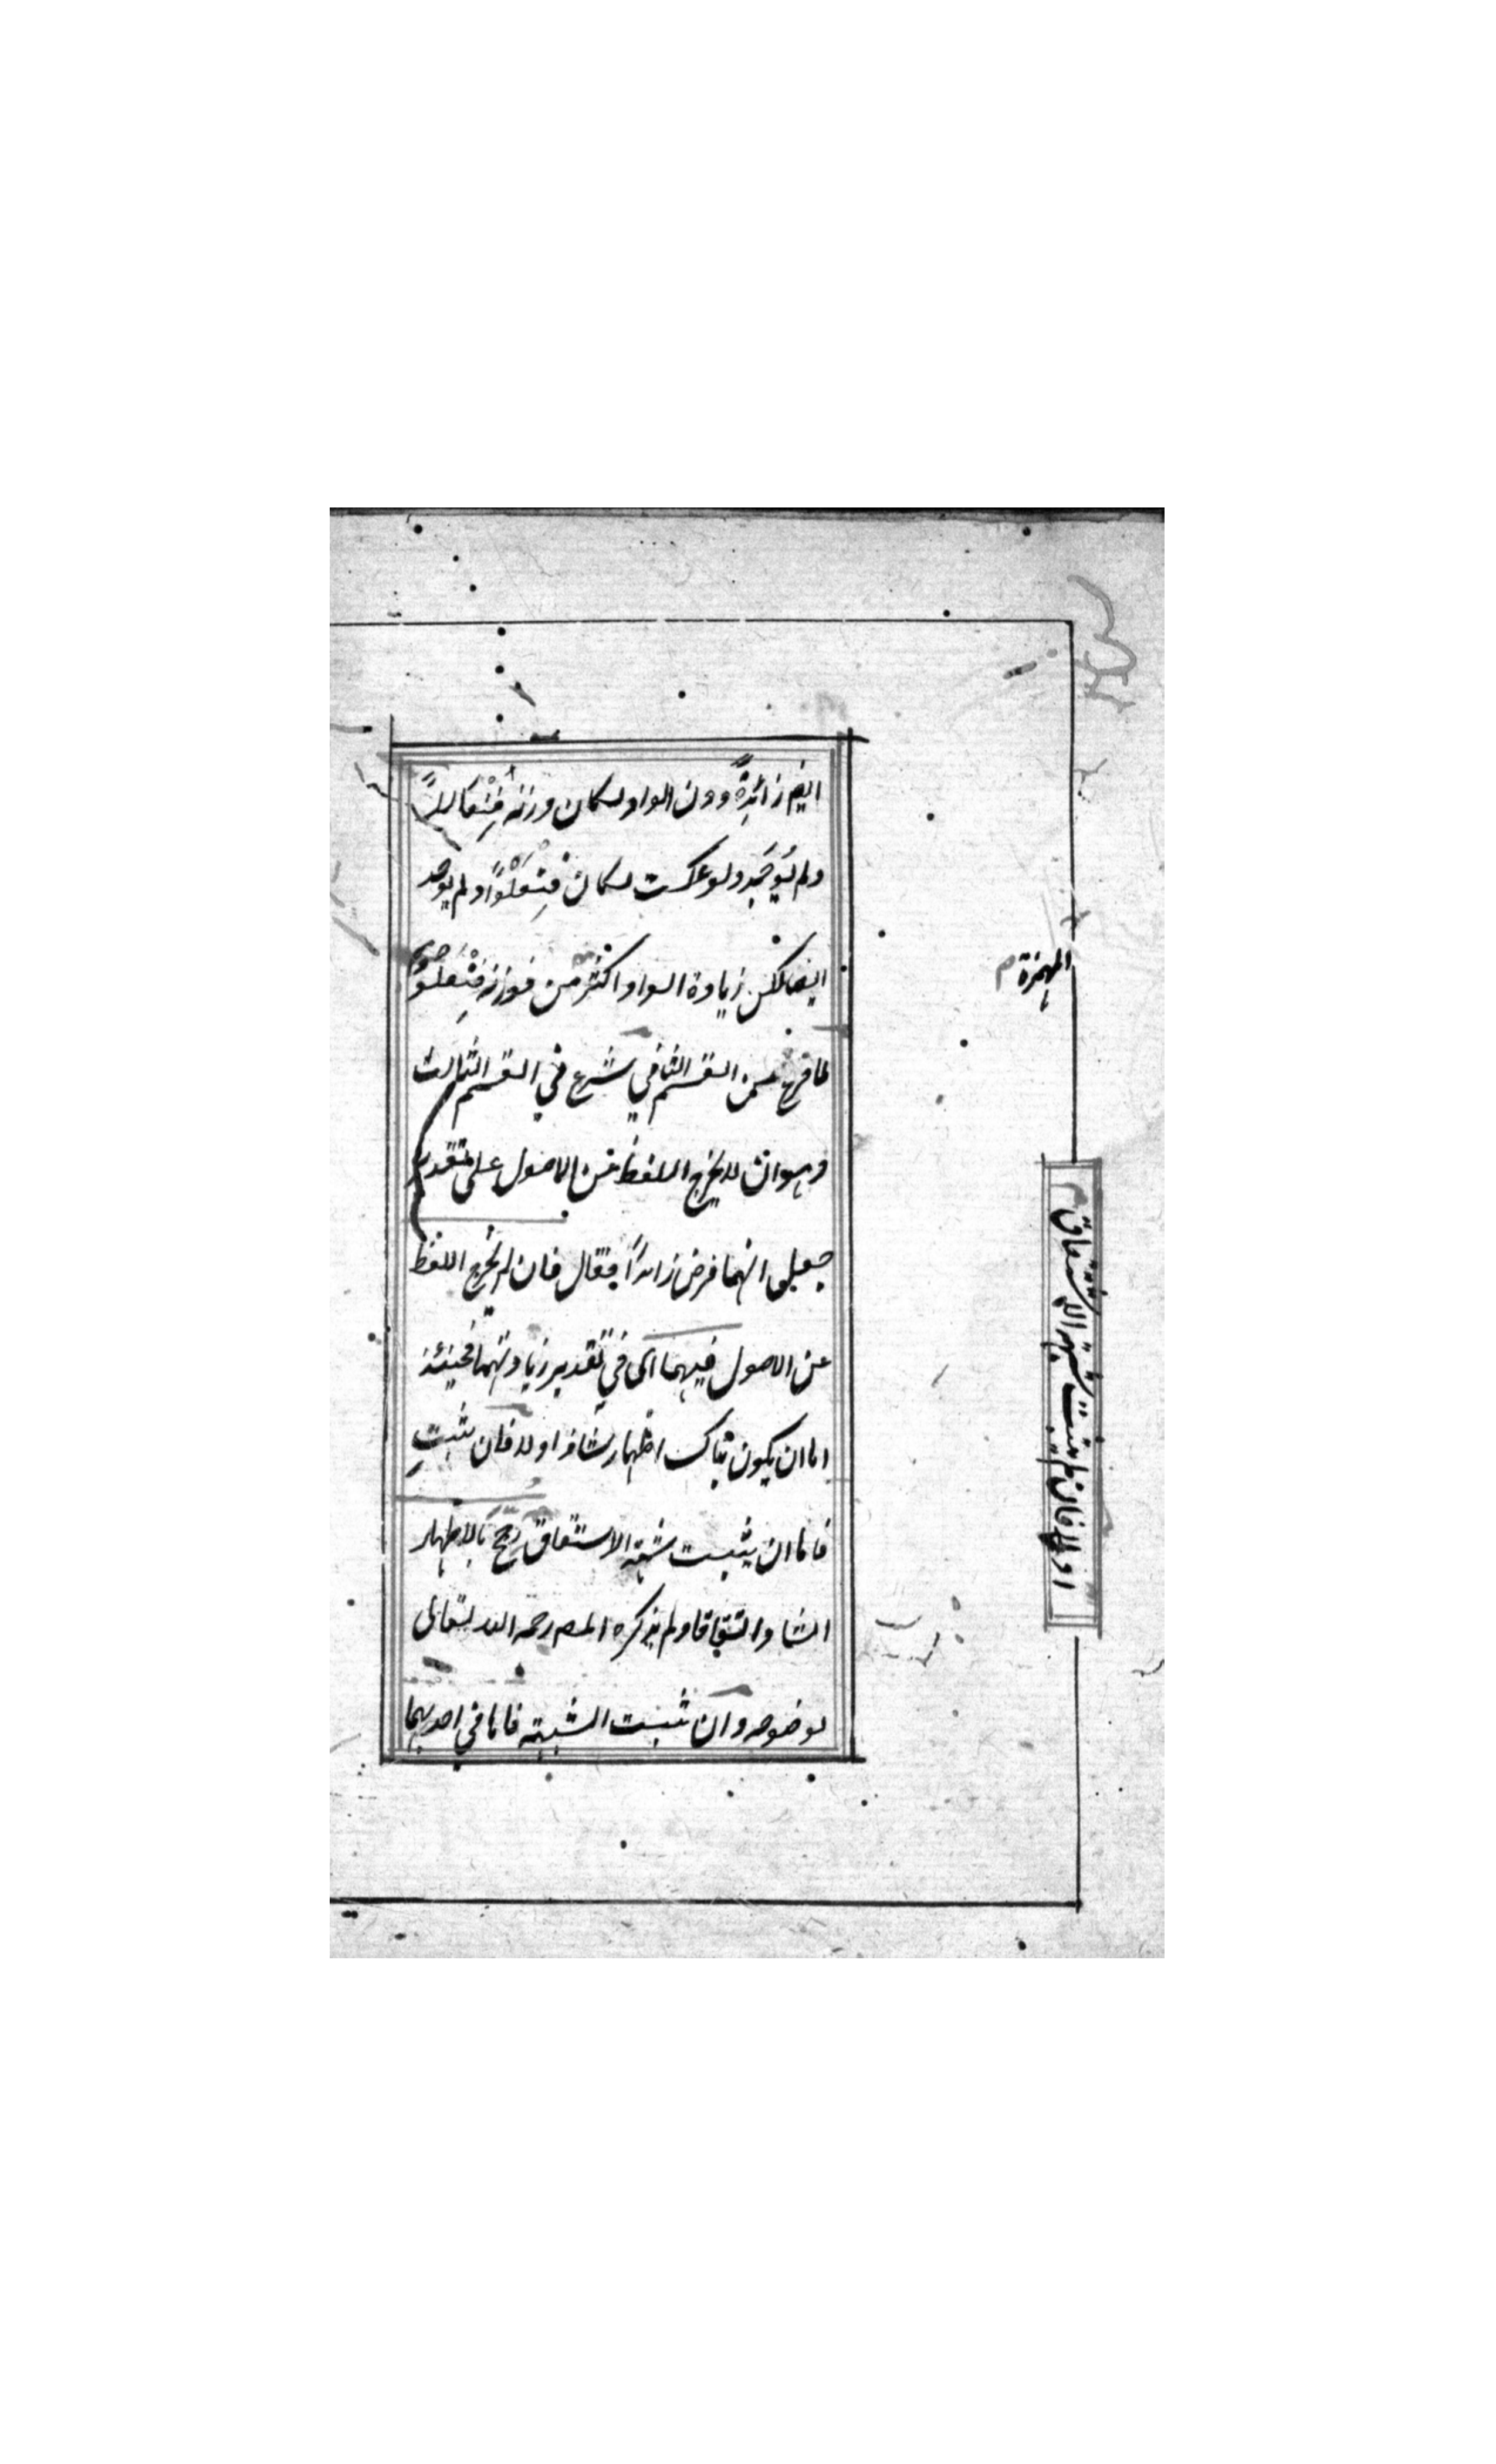 ايضا زائدةً دون الواو لكان وزنه فِنْعَاللاً
ولم يُوجَد ولو عكست لكان فِنْعَلْوًا ولم يوجد
ايضا لكن زيادة الواو اكثر من فوزنه فِنْعَلْوٌ
لما فرغ من القسم الثاني شرع في القسم الثالث
وهو ان لا يخرج اللفظ عن الاصول على تقدير
جعل ايهما فرض زائدًا فقال فان لم يخرج اللفظ
عن الاصول فيهما اى في تقدير زيادتهما فحينئذ
اما ان يكون هناك اظهار شاذ او لا فان ثبت
فاما ان يثبت شبهة الاشتقاق رجح بالاظهار
الشاذ اتفاقا ولم يذكره المصـ رحمه الله تعالى
لوضوحه وان ثبت الشبهة فاما في احدهما
الهمزة م
او لا فان لم يثبت شبهة الاشتقاق م